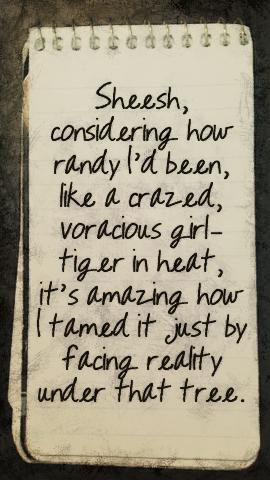 Sheesh,
considering how
randy I'd been,
like a crazed,
voracious girl-
tiger in heat,
it's amazing how
I tamed it just by
facing reality
under that tree.